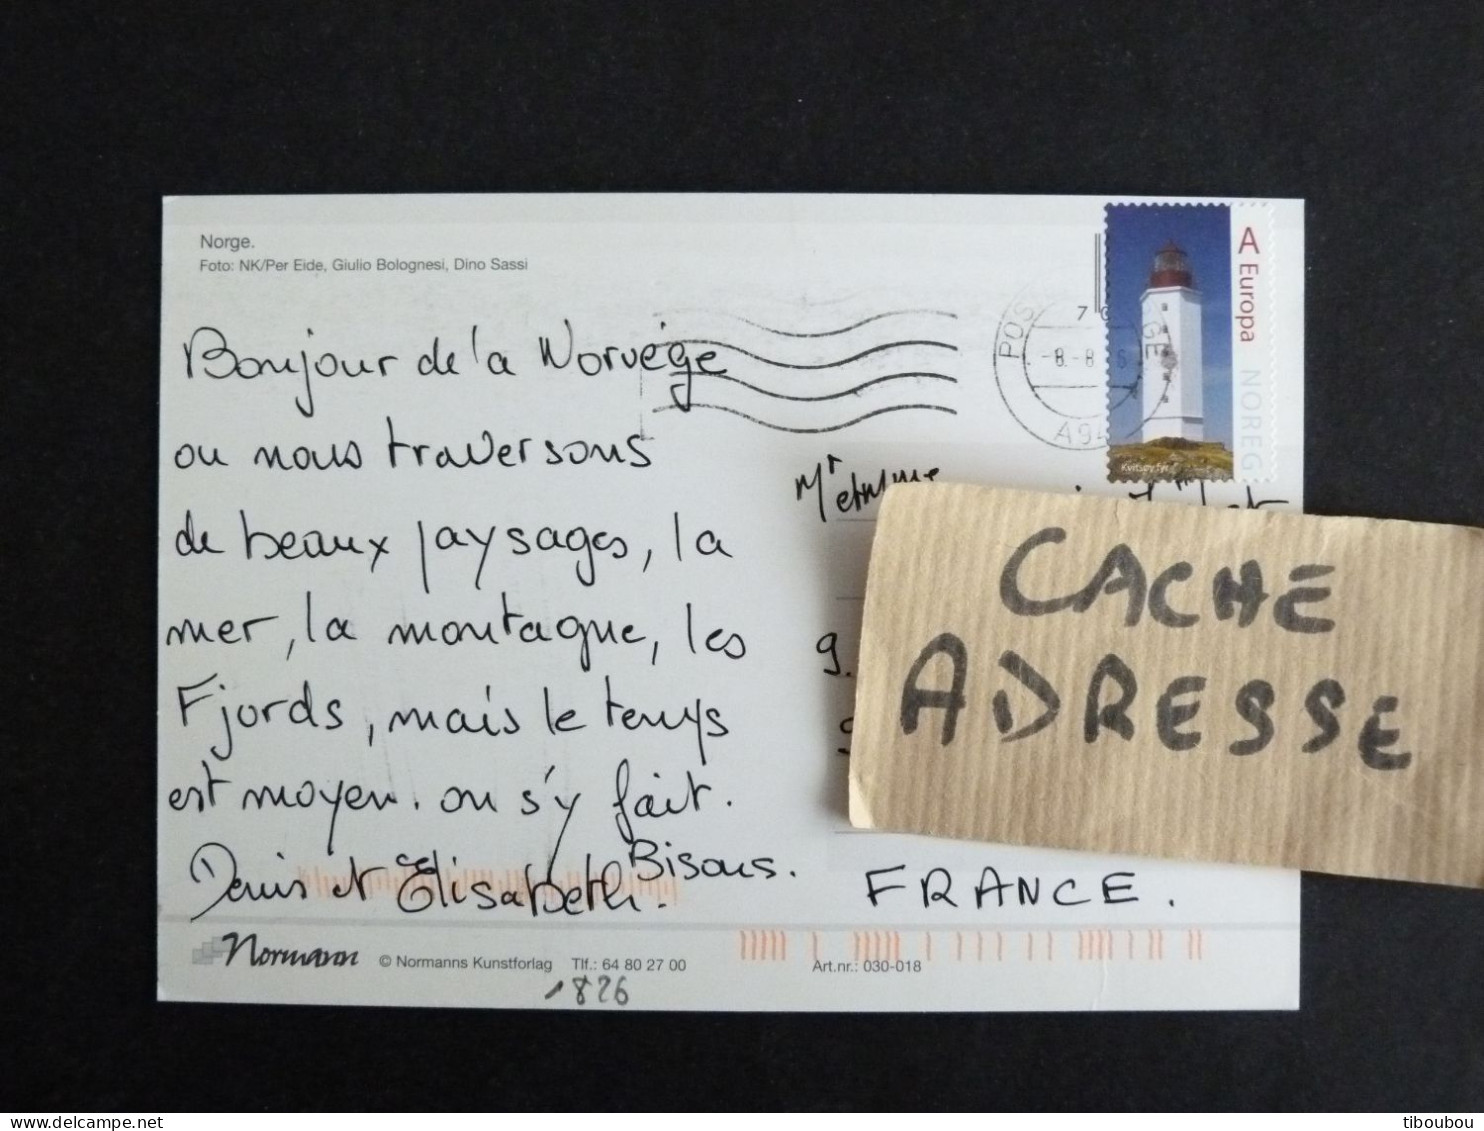 Norge.
Foto: NK/Per Eide, Giulio Bolognesi, Dino Sassi
Bonjour de la Norvège
ou nous traversons
de beaux paysages, la
mer, la montagne, les
Fjords, mais le temps
est moyen. on s'y fait.
Bisous.
Denis et Elisabeth.
Normann © Normanns Kunstforlag Tlf.: 64 80 27 00 Art.nr.: 030-018
1826
A Europa
NOREG
Kvitsøy fyr
Mr et Mme
CACHE
ADRESSE
FRANCE.
delcampe.net
tiboubou